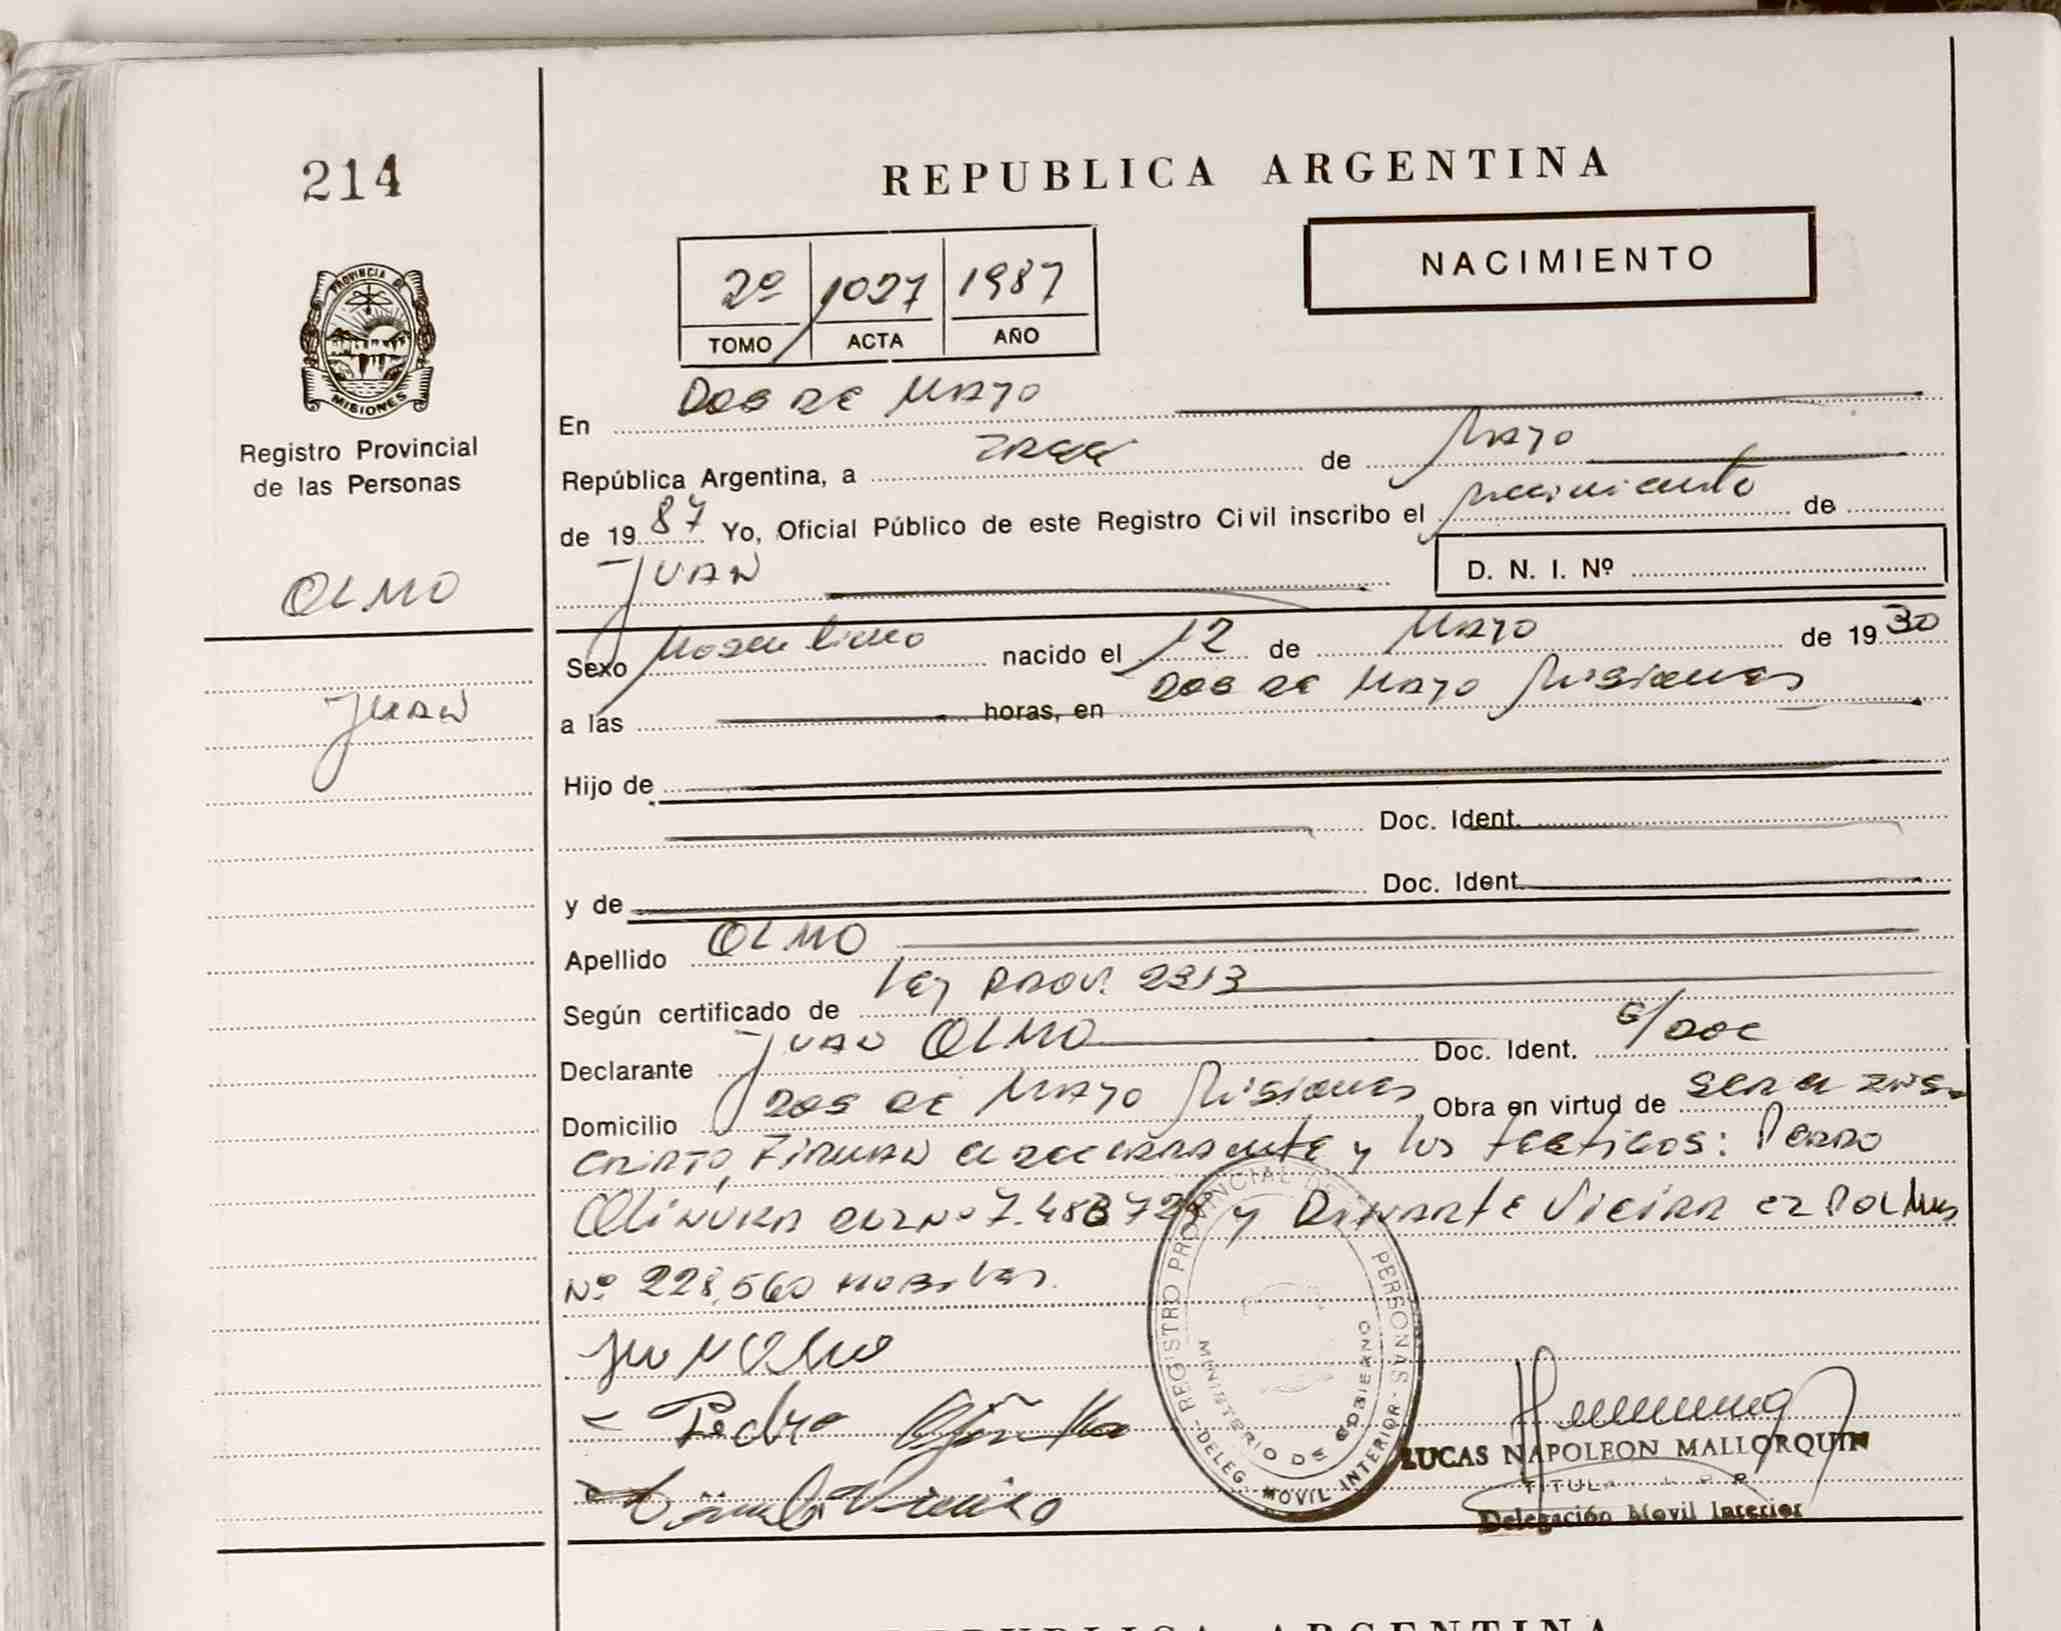 214
REPUBLICA ARGENTINA
NACIMIENTO
2º 1027 1987
TOMO ACTA AÑO
PROVINCIA DE
MISIONES
Registro Provincial
de las Personas
OLMO
JUAN
En Dos de Mayo
República Argentina, a trece de Mayo
de 1987 Yo, Oficial Público de este Registro Civil inscribo el nacimiento de
JUAN
D. N. I. Nº
Sexo Masculino nacido el 12 de Mayo de 1930
a las horas, en Dos de Mayo Misiones
Hijo de
Doc. Ident.
y de Doc. Ident.
Apellido OLMO
Según certificado de Ley Prov. 2313
Declarante Juan OLMO Doc. Ident. s/doc
Domicilio Dos de Mayo Misiones Obra en virtud de ser el ins-
cripto, Firman el declarante y los testigos: Pedro
y Vieira
Nº 228.560
Pedro
REGISTRO PROVINCIAL DE PERSONAS - DELEG. MOVIL INTERIOR -
MINISTERIO DE GOBIERNO
LUCAS NAPOLEON MALLORQUIN
Delegación Movil Interior
REPUBLICA ARGENTINA